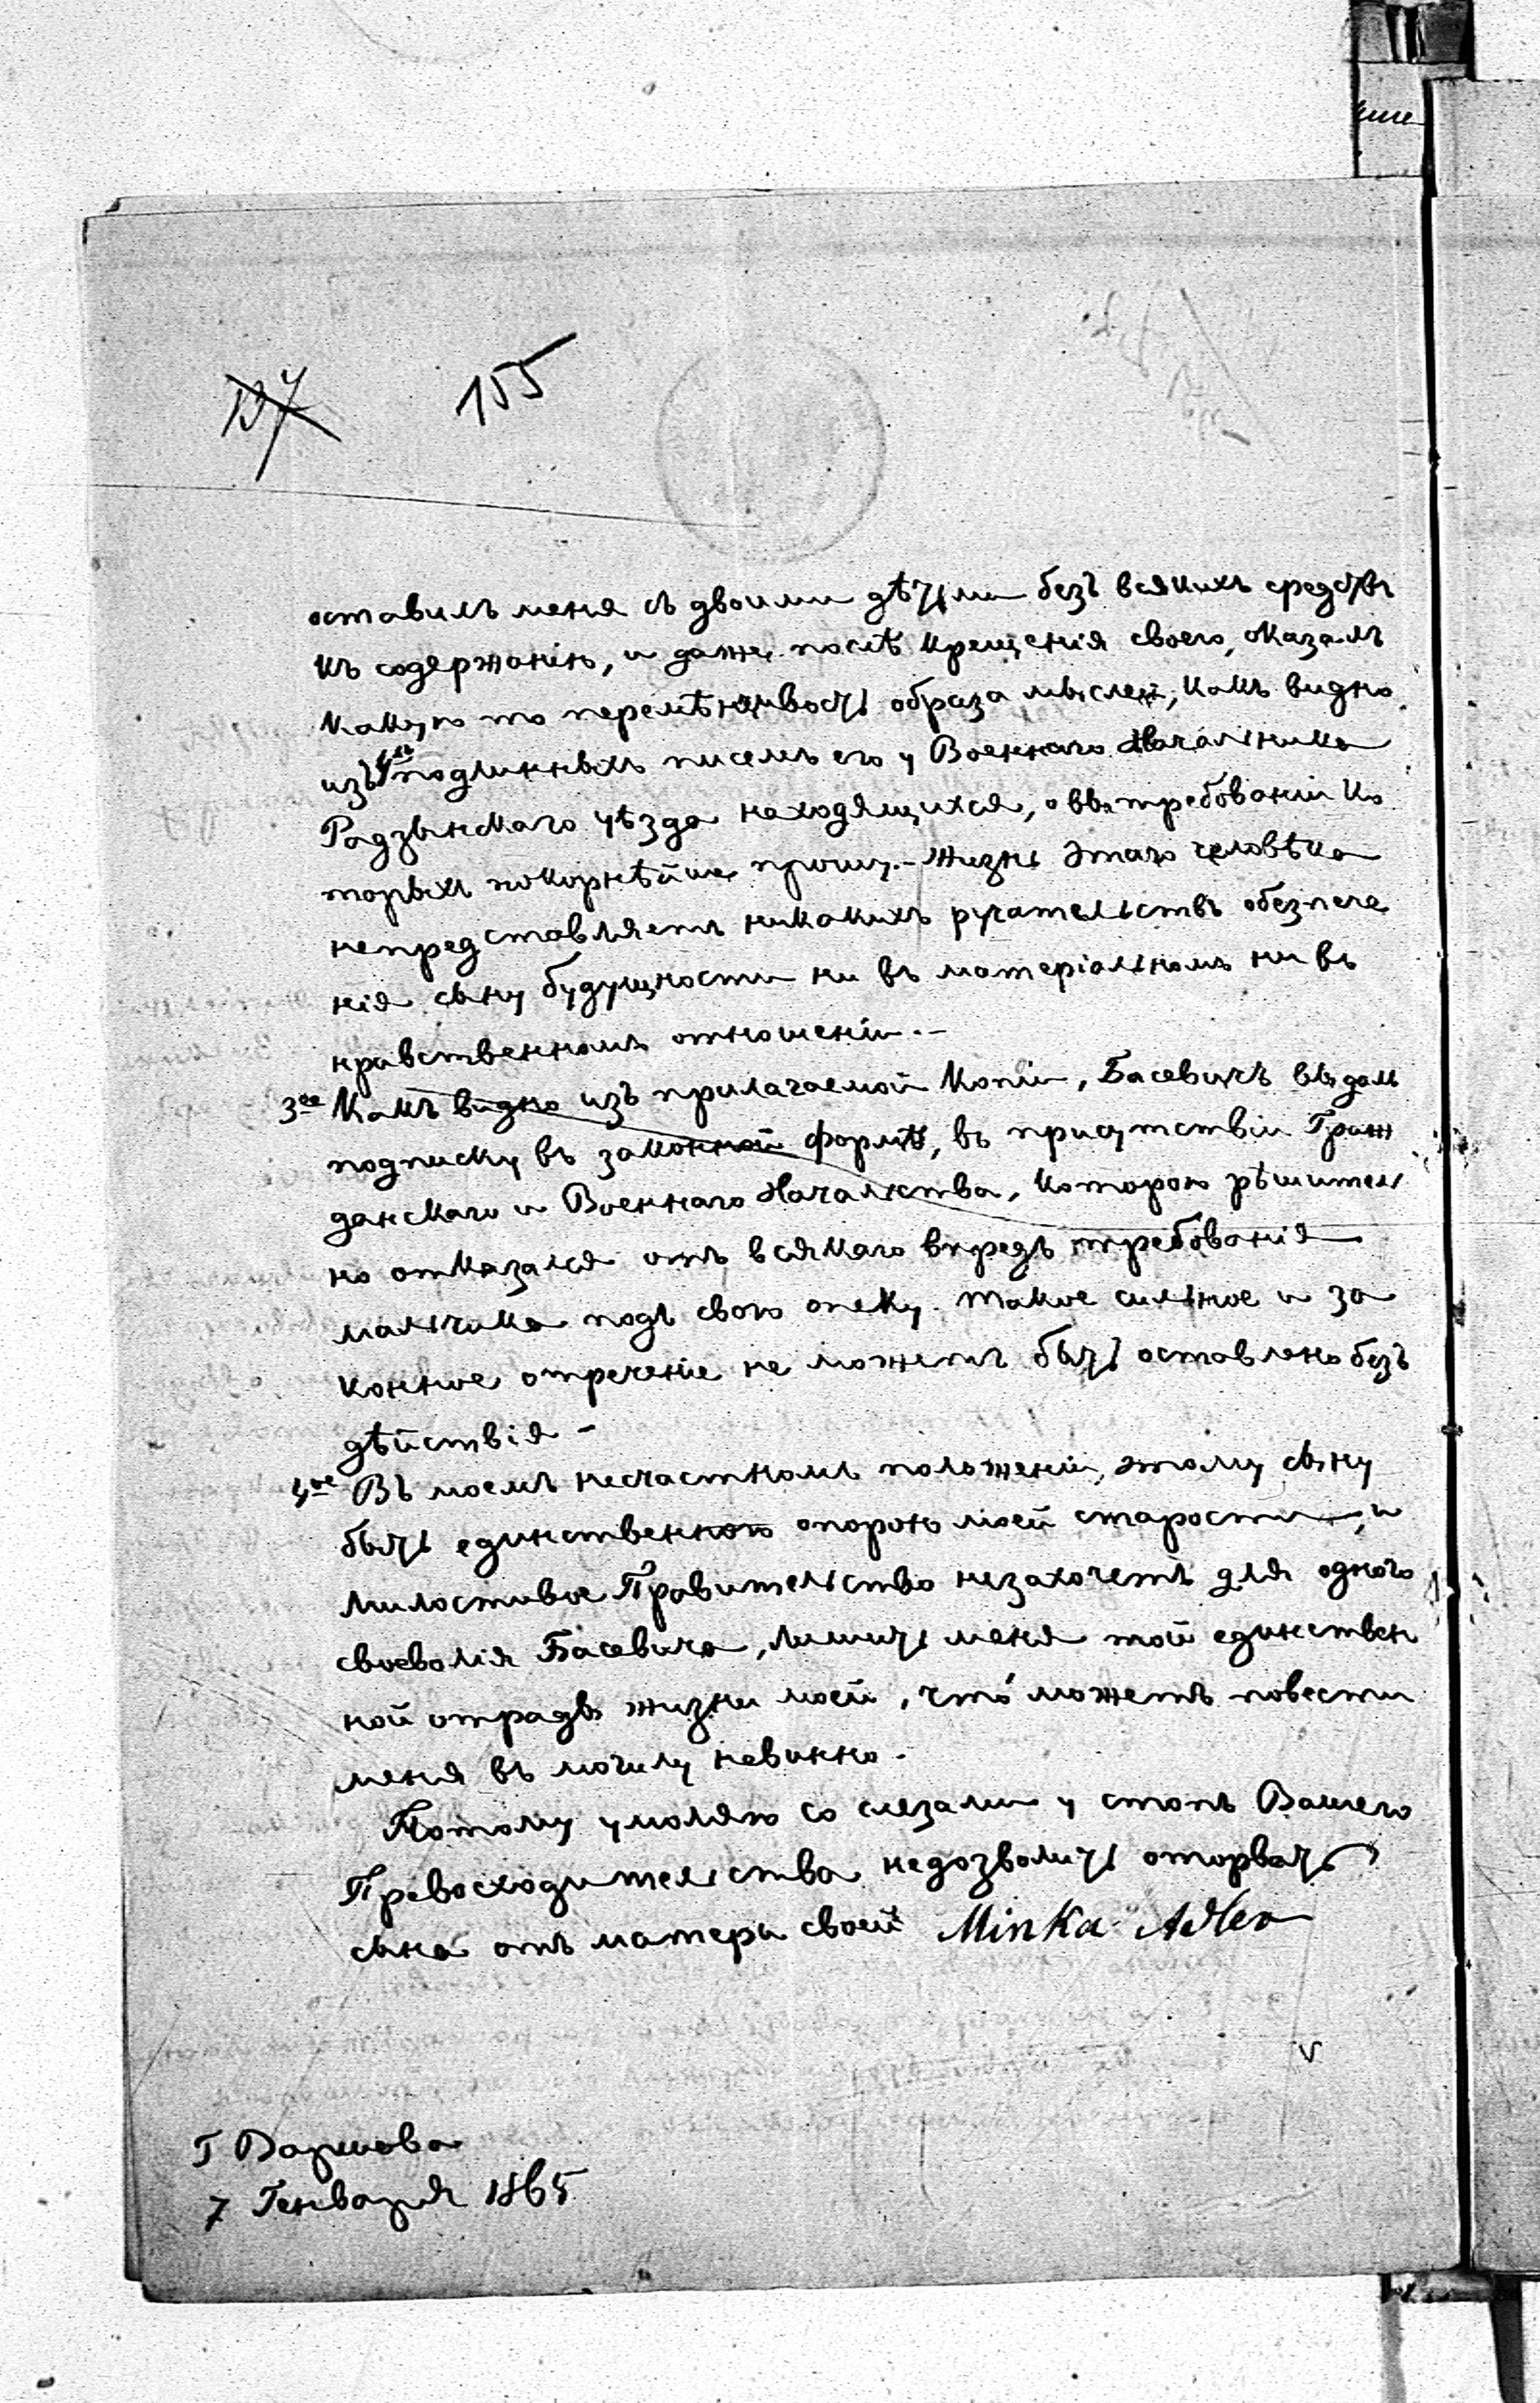 155
оставилъ меня съ двоими дѣтьми безъ всякихъ средствъ
къ содержанію, и даже послѣ крещенія своего, оказалъ
какую то перемѣнчивость образа мыслей, какъ видно
изъ подлинныхъ писемъ его у Военнаго Начальника
Радзынскаго уѣзда находящихся, о вытребованіи ко
торыхъ покорнѣйше прошу.- Жизнь этаго человѣка
непредставляетъ никакихъ ручательствъ обезпече
нія сыну будущности ни въ матеріальномъ ни въ
нравственномъ отношеніи.-
3ее Какъ видно изъ прилагаемой Копіи, Басевичъ выдалъ
подписку въ законной формѣ, въ присутствіи Граж
данскаго и Военнаго Начальства, которою рѣшитель
но отказался отъ всякаго впредъ требованія
мальчика подъ свою опеку. Такое сильное и за
конное отреченіе не можетъ быть оставлено безъ
дѣйствія -
4ое Въ моемъ несчастномъ положеніи, этому сыну
быть единственною опорою моей старости, и
Милостивое Правительство незахочетъ для одного
своеволія Басевича, лишить меня той единствен
ной отрады жизни моей, что́ можетъ повести
меня въ могилу невинно.
Потому умоляю со слезами у стопъ Вашего
Превосходительства недозволить оторвать
сына отъ матери своей Minka Adler
Г Варшава
7 Генваря 1865